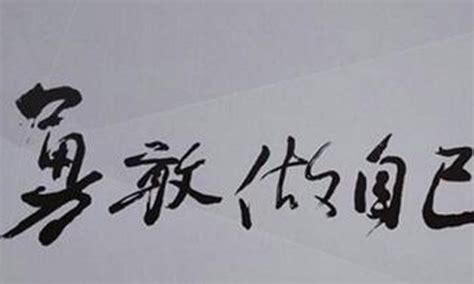 勇敢做自己